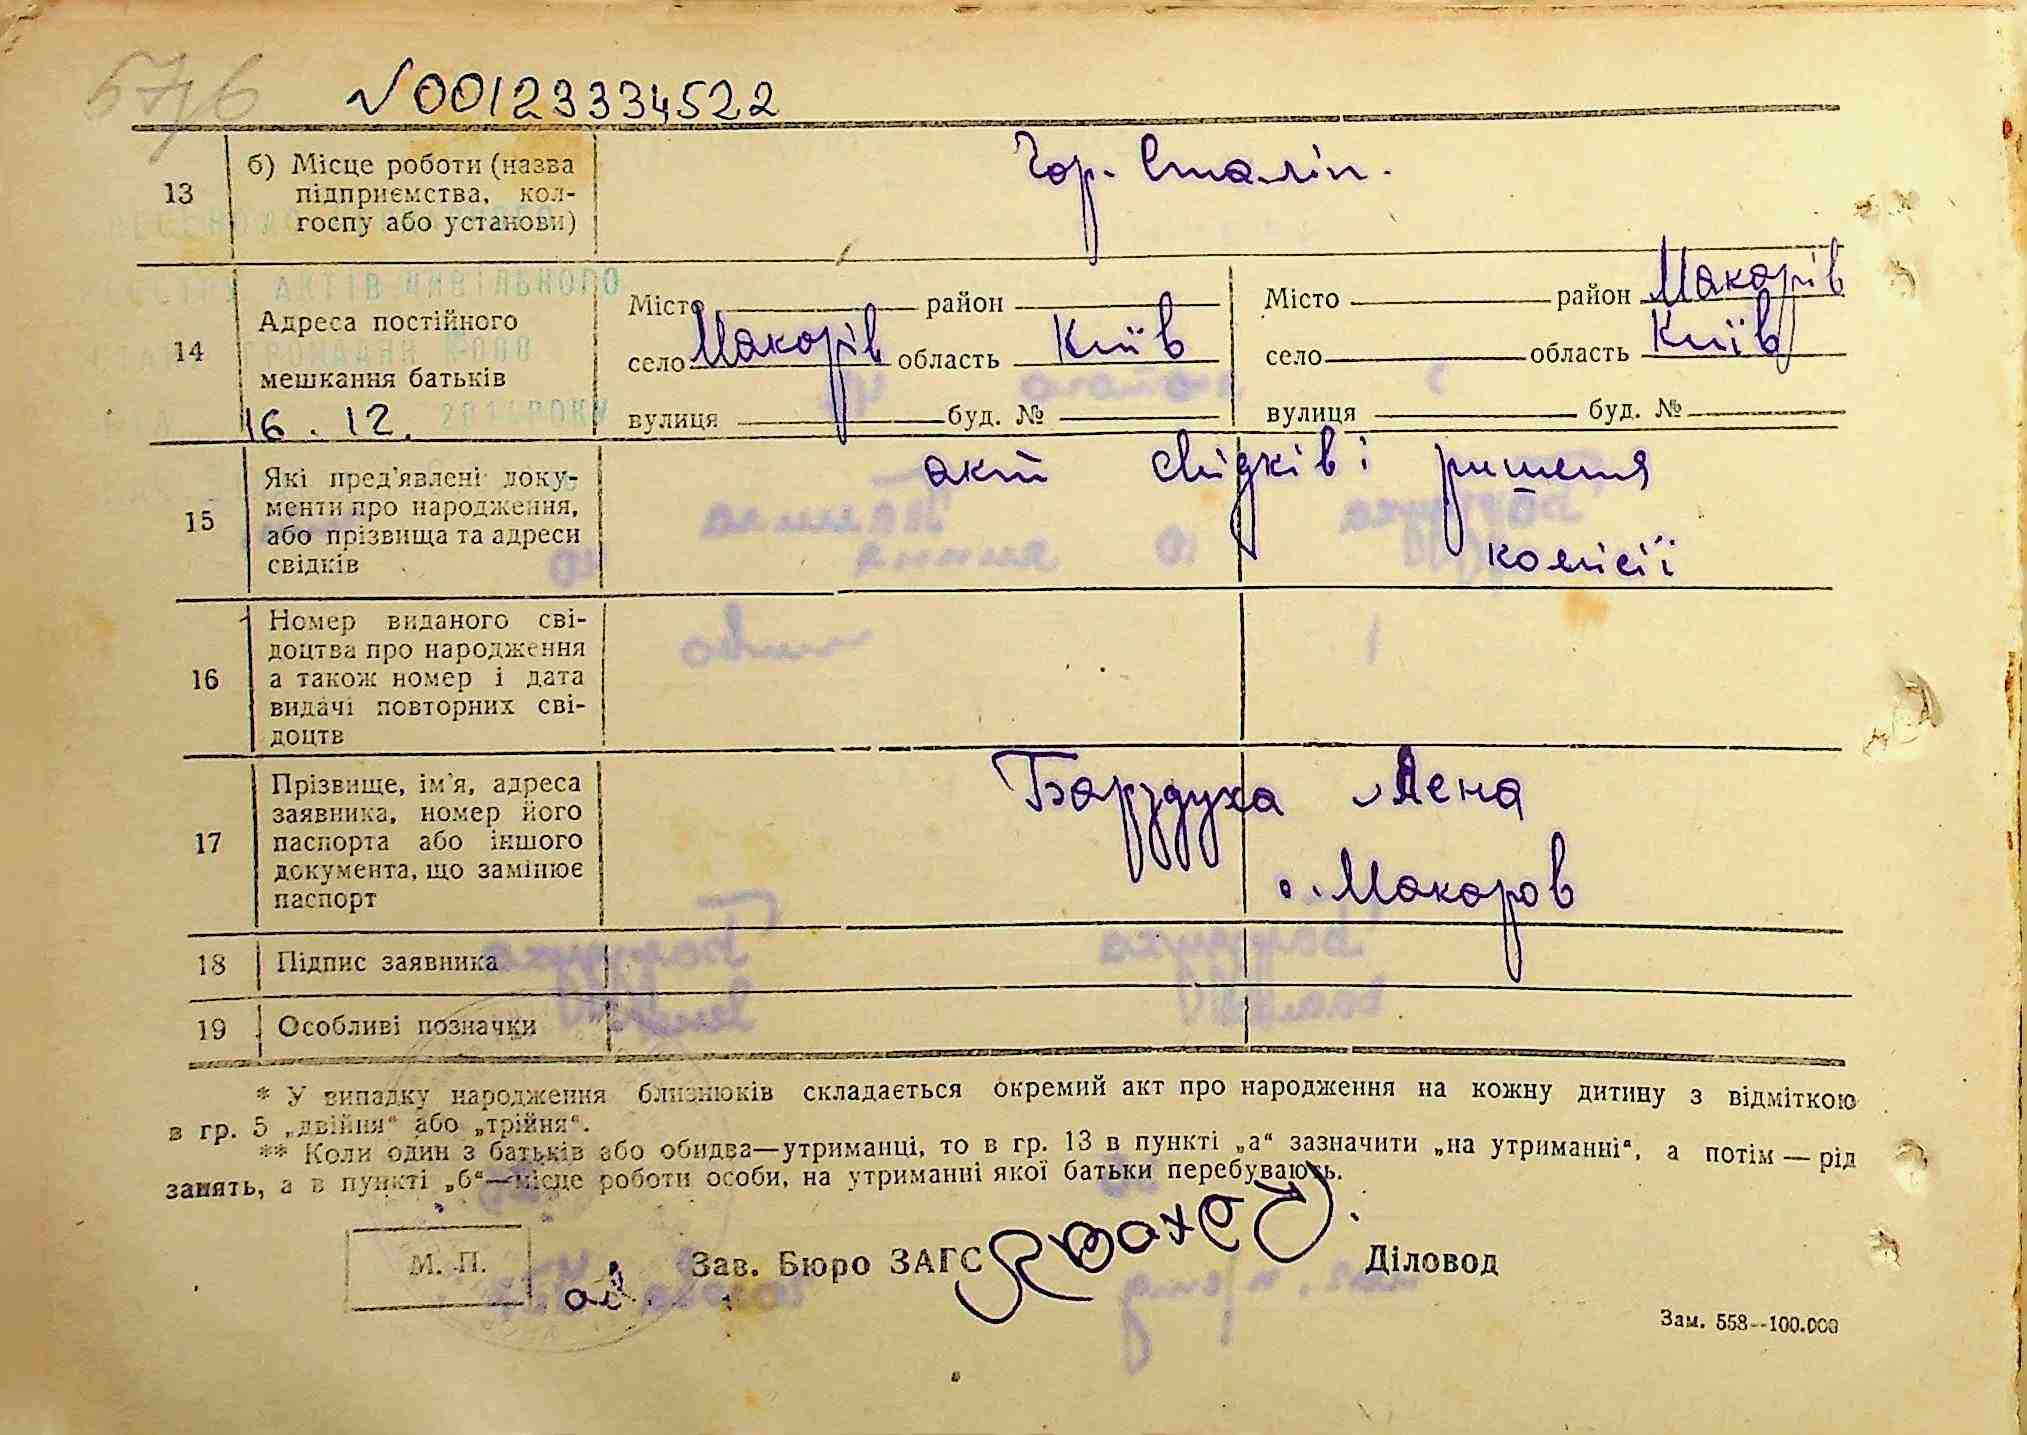 57/6 № 00123334522
13 б) Місце роботи (назва
підприємства, кол-
госпу або установи)
Чор. Сталін.
АКТІВ ЦИВІЛЬНОГО
ГРОМАДЯН
16.12. РОКУ
14 Адреса постійного
мешкання батьків
Місто район
село Макорів область Київ
вулиця буд. №
Місто район Макорів
село область Київ
вулиця буд. №
15 Які пред'явлені доку-
менти про народження,
або прізвища та адреси
свідків
акт свідків і ришеня
комісії
16 Номер виданого сві-
доцтва про народження
а також номер і дата
видачі повторних сві-
доцтв
17 Прізвище, ім'я, адреса
заявника, номер його
паспорта або іншого
документа, що замінює
паспорт
Бардуха Лена
с. Макоров
18 Підпис заявника
19 Особливі позначки
* У випадку народження близнюків складається окремий акт про народження на кожну дитину з відміткою
в гр. 5 „двійня“ або „трійня“.
** Коли один з батьків або обидва—утриманці, то в гр. 13 в пункті „а“ зазначити „на утриманні“, а потім — рід
занять, а в пункті „б“—місце роботи особи, на утриманні якої батьки перебувають.
М. П. Зав. Бюро ЗАГС Діловод
Зам. 558--100.000